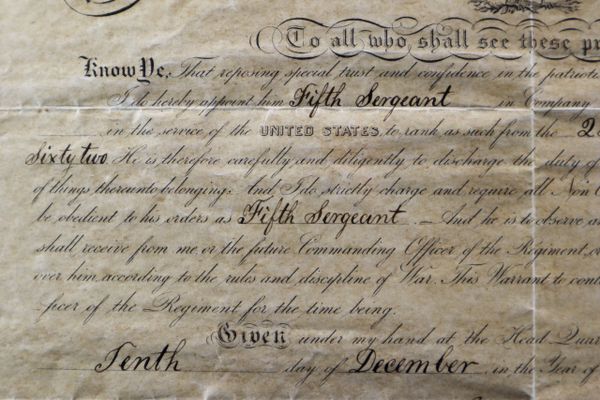 To all who shall see these pr
Know Ye, That reposing special trust and confidence in the patrioti
I do hereby appoint him Fifth Sergeant in Company
in the service of the UNITED STATES, to rank as such from the 2
Sixty two. He is therefore carefully and diligently to discharge the duty of
of things thereunto belonging. And I do strictly charge and require all Non C
be obedient to his orders as Fifth Sergeant. — And he is to observe a
shall receive from me, or the future Commanding Officer of the Regiment, or
over him, according to the rules and discipline of War. This Warrant to cont
-ficer of the Regiment for the time being.
Given under my hand at the Head Quar
Tenth day of December, in the Year of